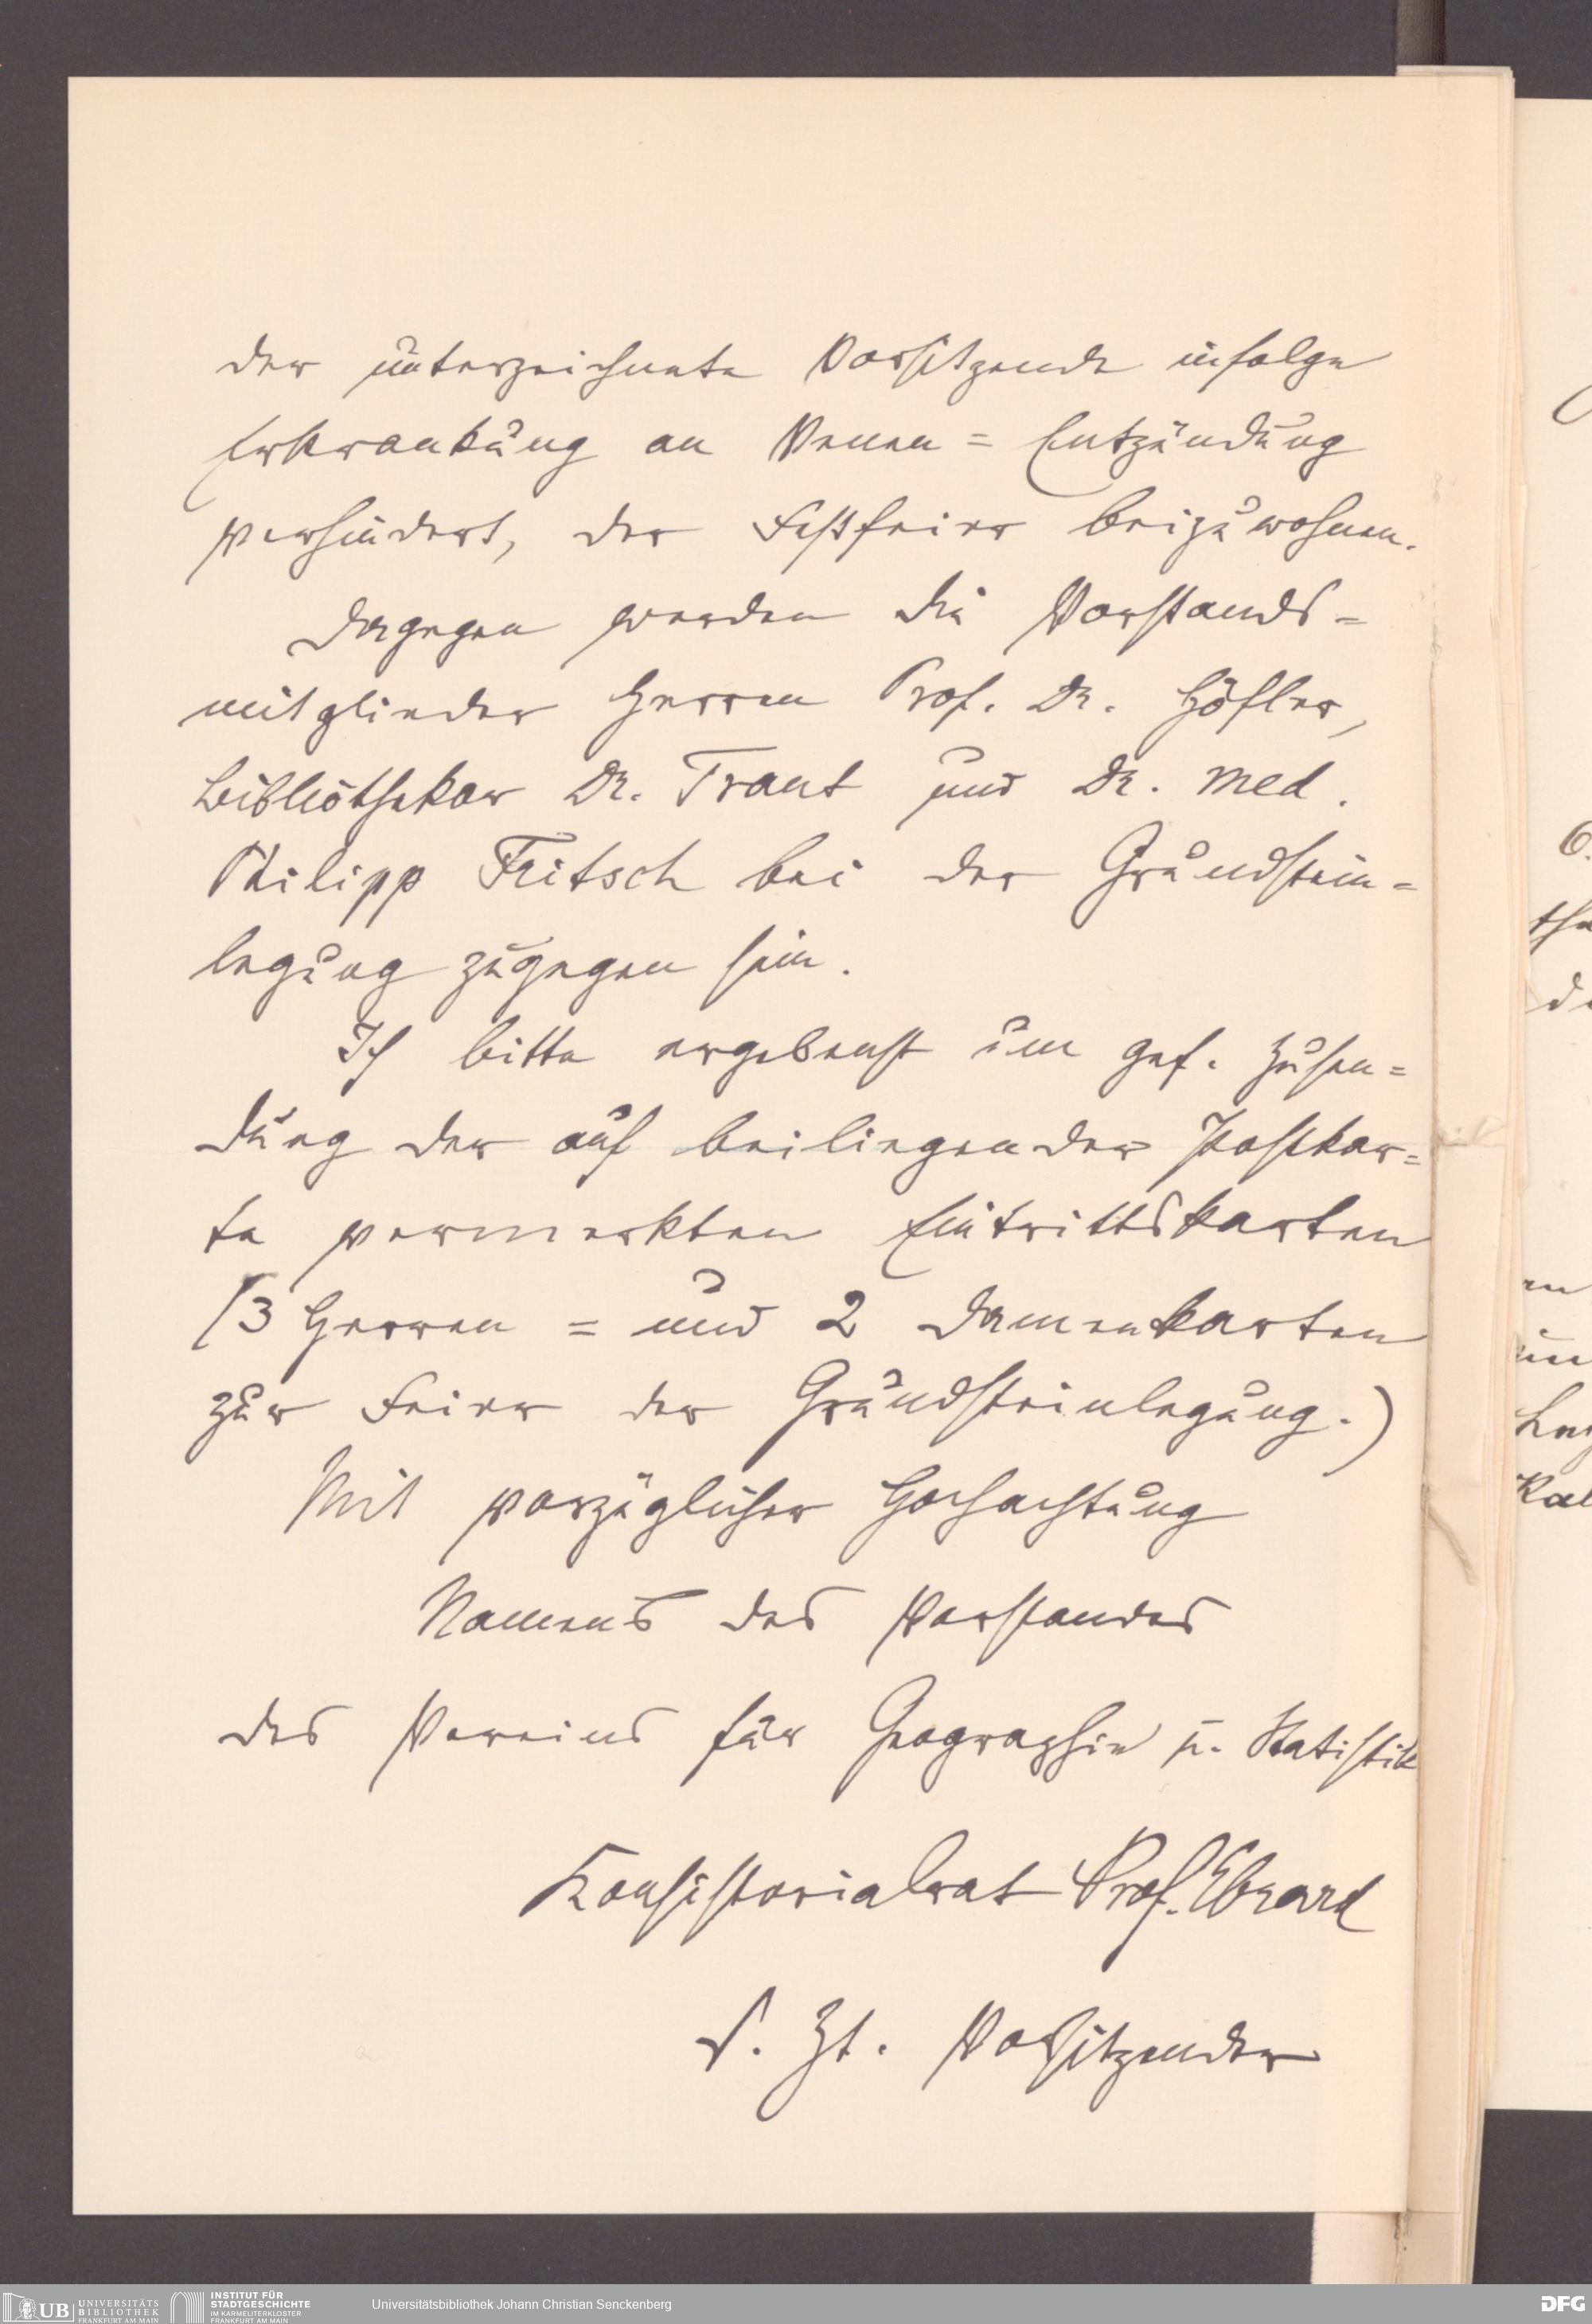 der unterzeichnete Vorsitzende infolge
Erkrankung an Venen=Entzündung
verhindert, der Festfeier beizuwohnen.
Dagegen werden die Vorstands=
mitglieder Herren Prof. Dr. Höfler,
Bibliothekar Dr. Traut und Dr. med.
Philipp Fritsch bei der Grundstein=
legung zugegen sein.
Ich bitte ergebenst um gef. Zusen=
dung der auf beiliegender Postkar=
te vermerkten Eintrittskarten
(3 Herren= und 2 Damenkarten
zur Feier der Grundsteinlegung.)
Mit vorzüglicher Hochachtung
Namens des Vorstandes
des Vereins für Geographie u. Statistik
Konsistorialrat Prof. Ebrard
d. Zt. Vorsitzender
UB UNIVERSITÄTS
BIBLIOTHEK
FRANKFURT AM MAIN
INSTITUT FÜR
STADTGESCHICHTE
IM KARMELITERKLOSTER
FRANKFURT AM MAIN
Universitätsbibliothek Johann Christian Senckenberg
DFG